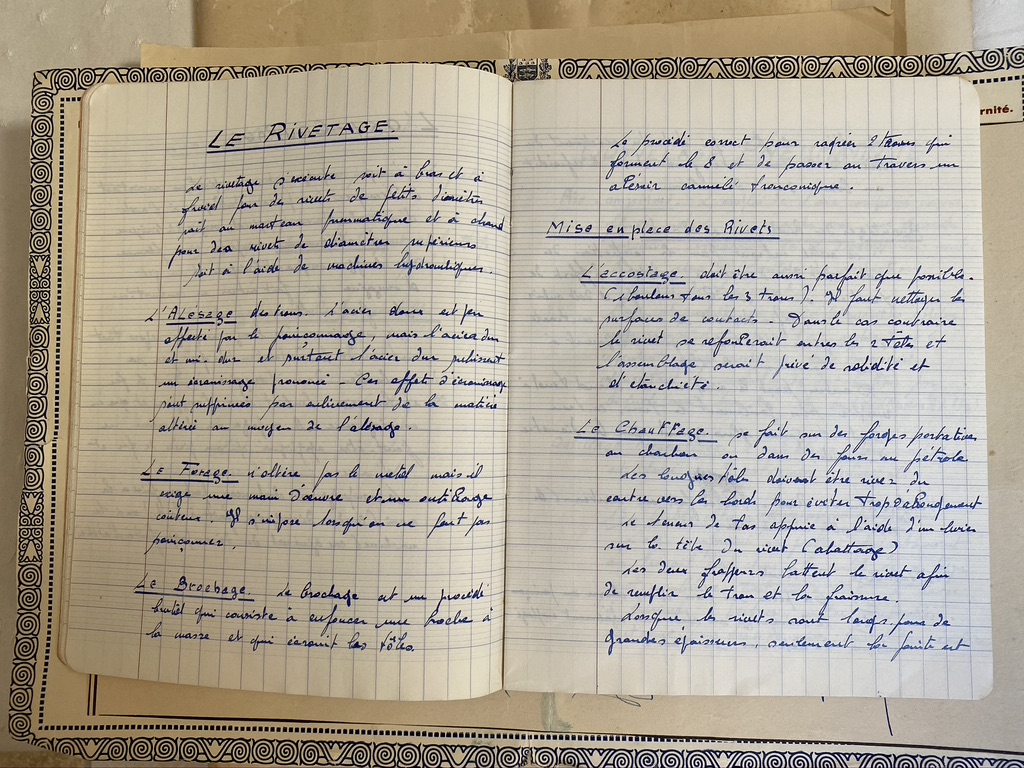 LE RIVETAGE.
Le rivetage s'exécute soit à bras et à
froid pour des rivets de petits diamètres
soit au marteau pneumatique et à chaud
pour des rivets de diamètres supérieurs
soit à l'aide de machines hydrauliques.
L'ALésage des trous. L'acier doux est peu
affecté par le poinçonnage, mais l'acier dur
et mi-dur et surtout l'acier dur
un écrouissage prononcé - Ces effets d'écrouissage
sont supprimés par enlèvement de la matière
altérée au moyen de l'alésage.
Le Forage n'altère pas le métal mais il
exige une main d'œuvre et un outillage
couteux. Il s'impose lorsqu'on ne peut pas
poinçonner.
Le Brochage. Le brochage est un procédé
brutal qui consiste à enfoncer une broche à
la masse et qui écrouit les tôles.
Le procédé correct pour rafréer 2 trous qui
forment le 8 et de passer au travers un
alésoir cannelé tronconique.
Mise en place des Rivets
L'accostage doit être aussi parfait que possible.
(1 boulon tous les 3 trous). Il faut nettoyer les
surfaces de contacts. Dans le cas contraire
le rivet se refoulerait entres les 2 Tôles et
l'assemblage serait privé de solidité et
d'étanchiété.
Le Chauffage. se fait sur des forges portatives
au charbon ou dans des fours au pétrole
Les longues tôles doivent être rivées du
centre vers les bords pour éviter trop d'allongement
Le teneur de tas appuie à l'aide d'un levier
sur la tête du rivet (abattage)
Les deux frappeurs battent le rivet afin
de remplir le trou et la fraisure.
Lorsque les rivets sont longs, pour de
grandes épaisseurs, seulement la pointe est
rnité.